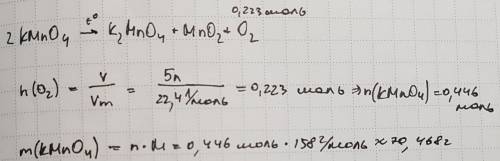 0,223 моль
2 KMnO₄ →t° K₂MnO₄ + MnO₂ + O₂
n(O₂) = V/Vm = 5л/22,4 л/моль = 0,223 моль ⇒ n(KMnO₄) = 0,446 моль
m(KMnO₄) = n · M = 0,446 моль · 158 г/моль × 70,468 г